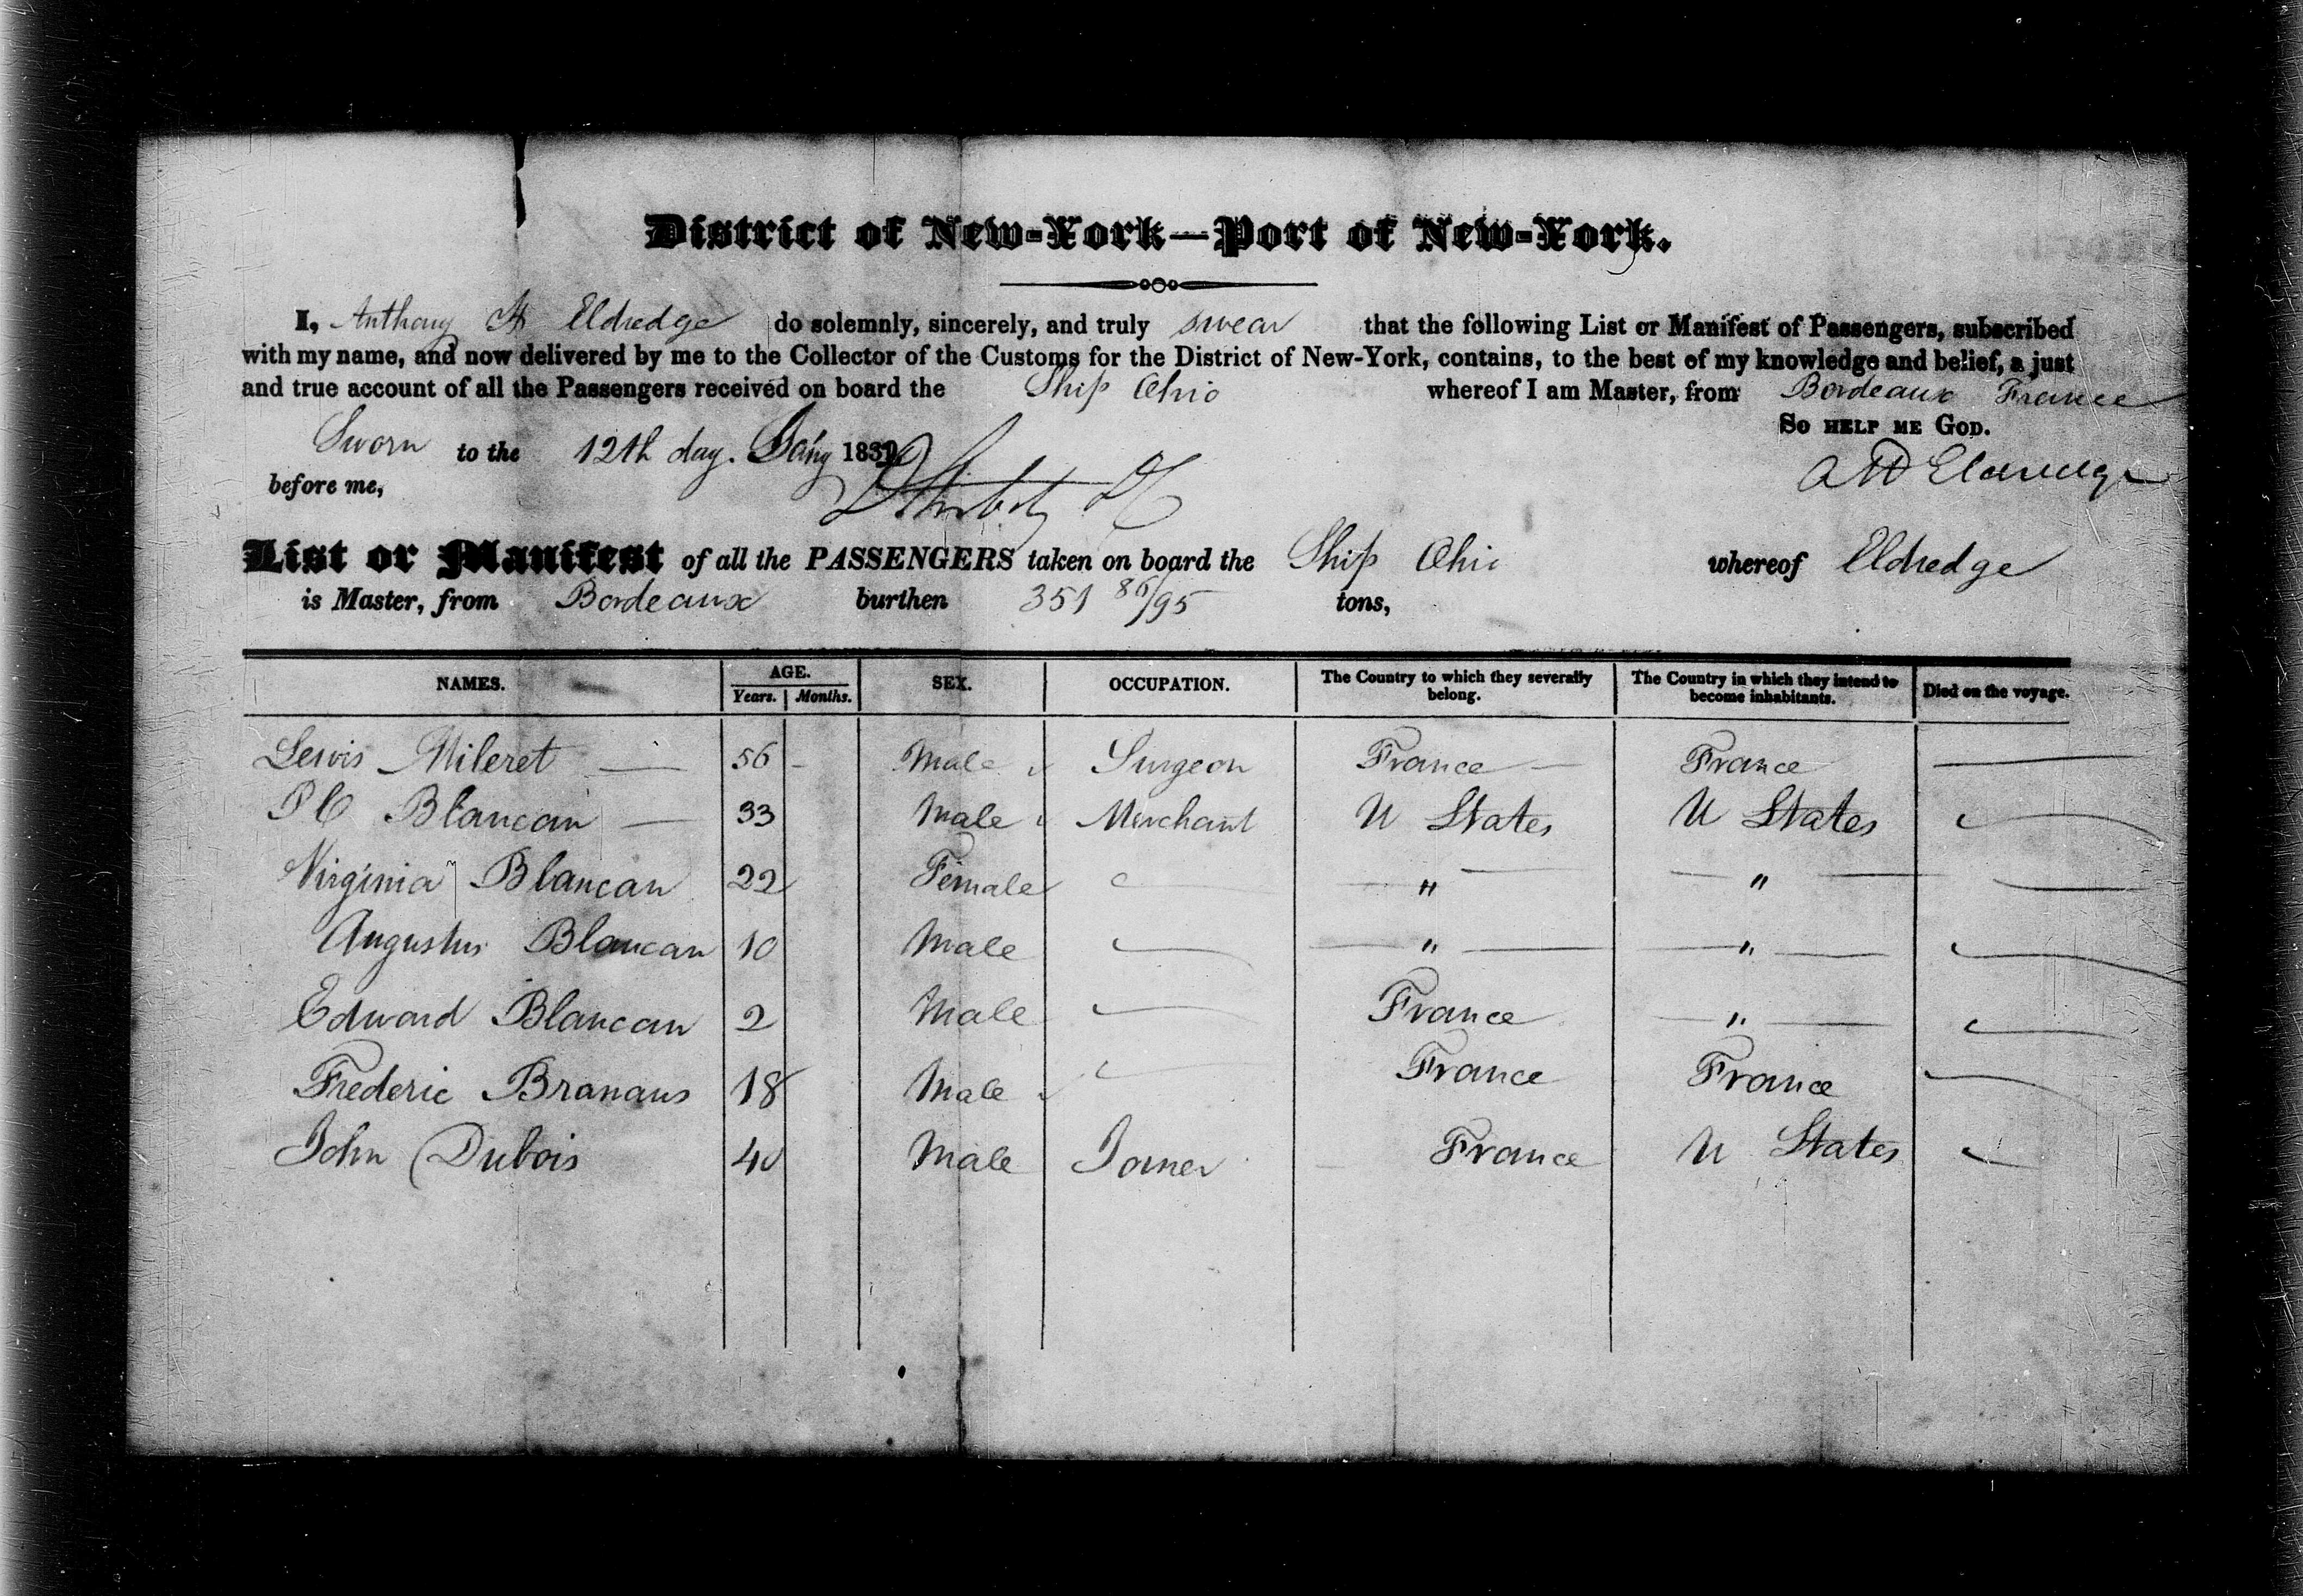 District of New-York—Port of New-York.
I, Anthony H Eldredge do solemnly, sincerely, and truly swear that the following List or Manifest of Passengers, subscribed
with my name, and now delivered by me to the Collector of the Customs for the District of New-York, contains, to the best of my knowledge and belief, a just
and true account of all the Passengers received on board the Ship Ohio whereof I am Master, from Bordeaux France
So help me God.
Sworn to the 12th day. Jany 183
before me,
Eldredge
List or Manifest of all the PASSENGERS taken on board the Ship Ohio whereof Eldredge
is Master, from Bordeaux burthen 351 86/95 tons,
NAMES. AGE. Years. Months. SEX. OCCUPATION. The Country to which they severally belong. The Country in which they intend to become inhabitants. Died on the voyage.
Lewis Mileret — 56 - Male Surgeon France — France —
P C Blancan — 33 Male Merchant U States U States —
Virginia Blancan 22 Female — — " — — " — —
Augustus Blancan 10 Male — — " — — " — —
Edward Blancan 2 Male — France — " — —
Frederic Branaus 18 Male — France France —
John Dubois 40 Male Joiner France U States —